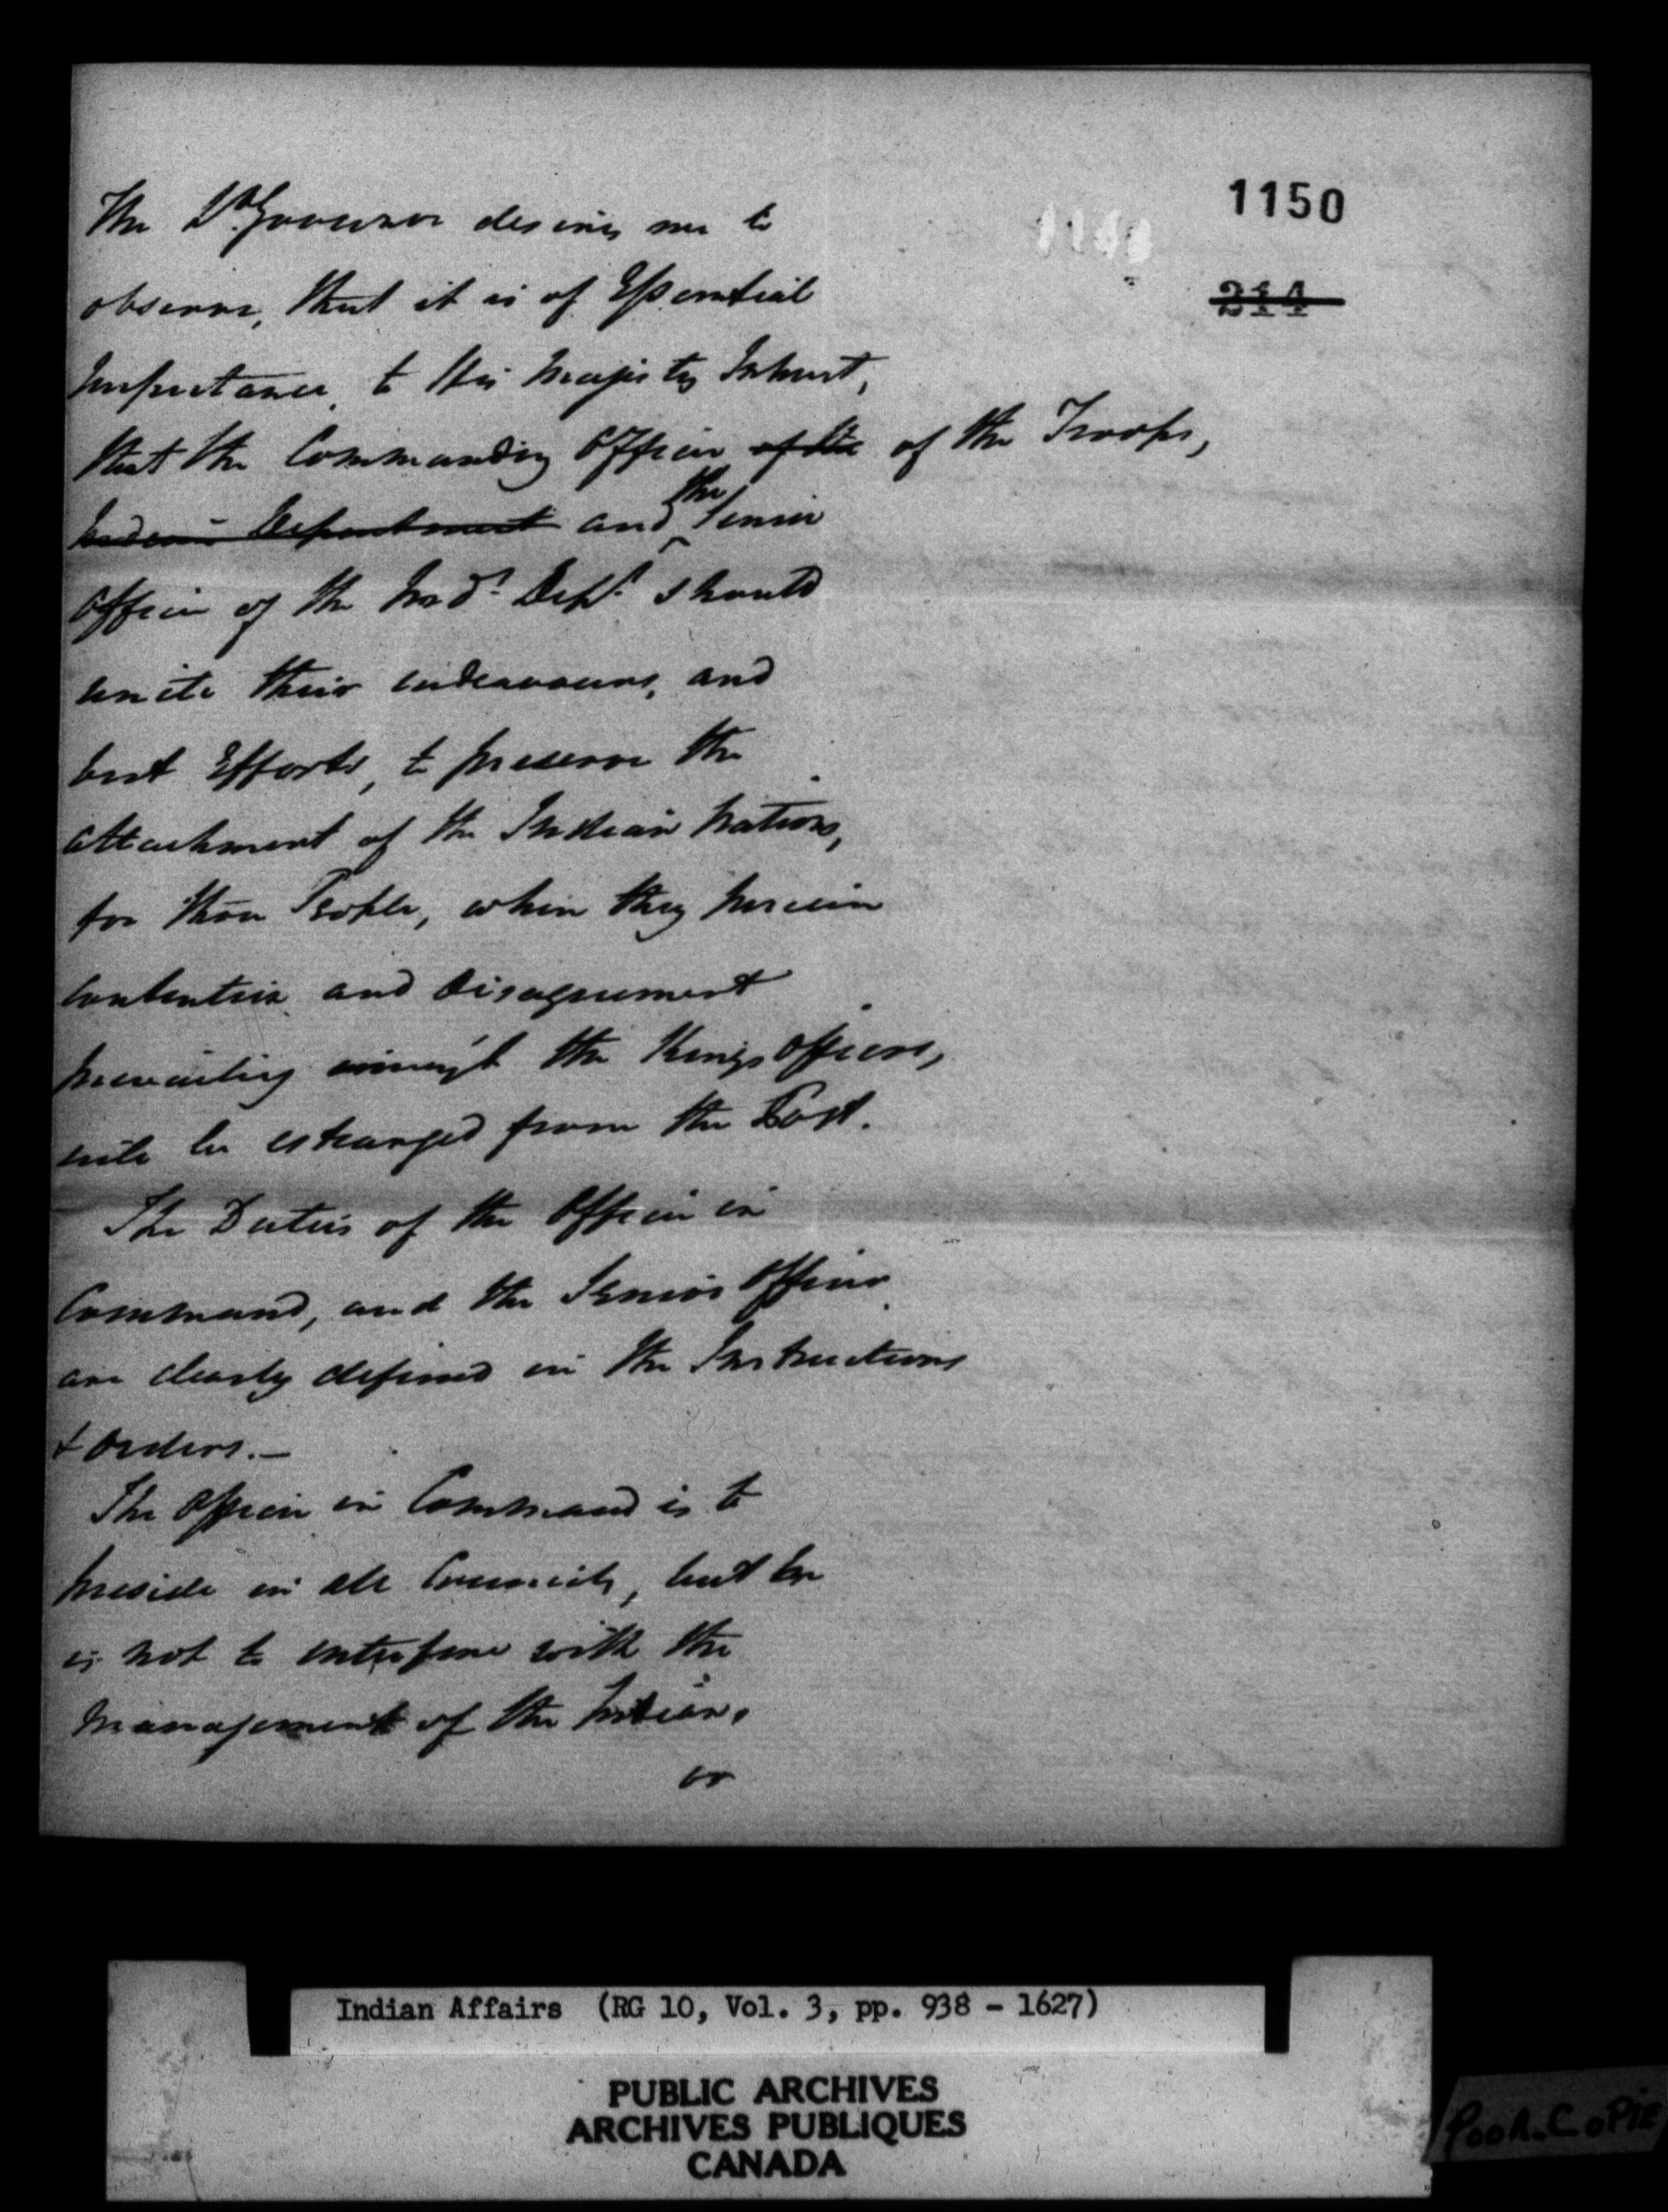 1150
214
The Lt. Governor desires me to
observe, that it is of Essential
Importance, to His Majesty Interest,
that the Commanding Officer of the of the Troops,
Indian Department and the Senior
Officer of the Ind.n Dept. should
unite their endeavours, and
best Efforts, to preserve the
attachment of the Indian Nations,
for those People, when they perceive
contention and Disagreement
prevailing amongst the Kings Officers,
will be estranged from the Post.
The Duties of the Officer in
Command, and the Senior Officer
are clearly defined in the Instructions
& orders.—
The Officer in Command is to
preside in all Councils, but he
is not to interfere with the
Management of the Indians,
or
Indian Affairs (RG 10, Vol. 3, pp. 938 - 1627)
PUBLIC ARCHIVES
ARCHIVES PUBLIQUES
CANADA
POOR COPIE